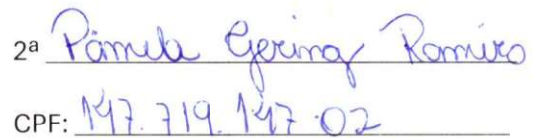 2ª Pâmela Gering Ramiro
CPF: 147.719.147-02